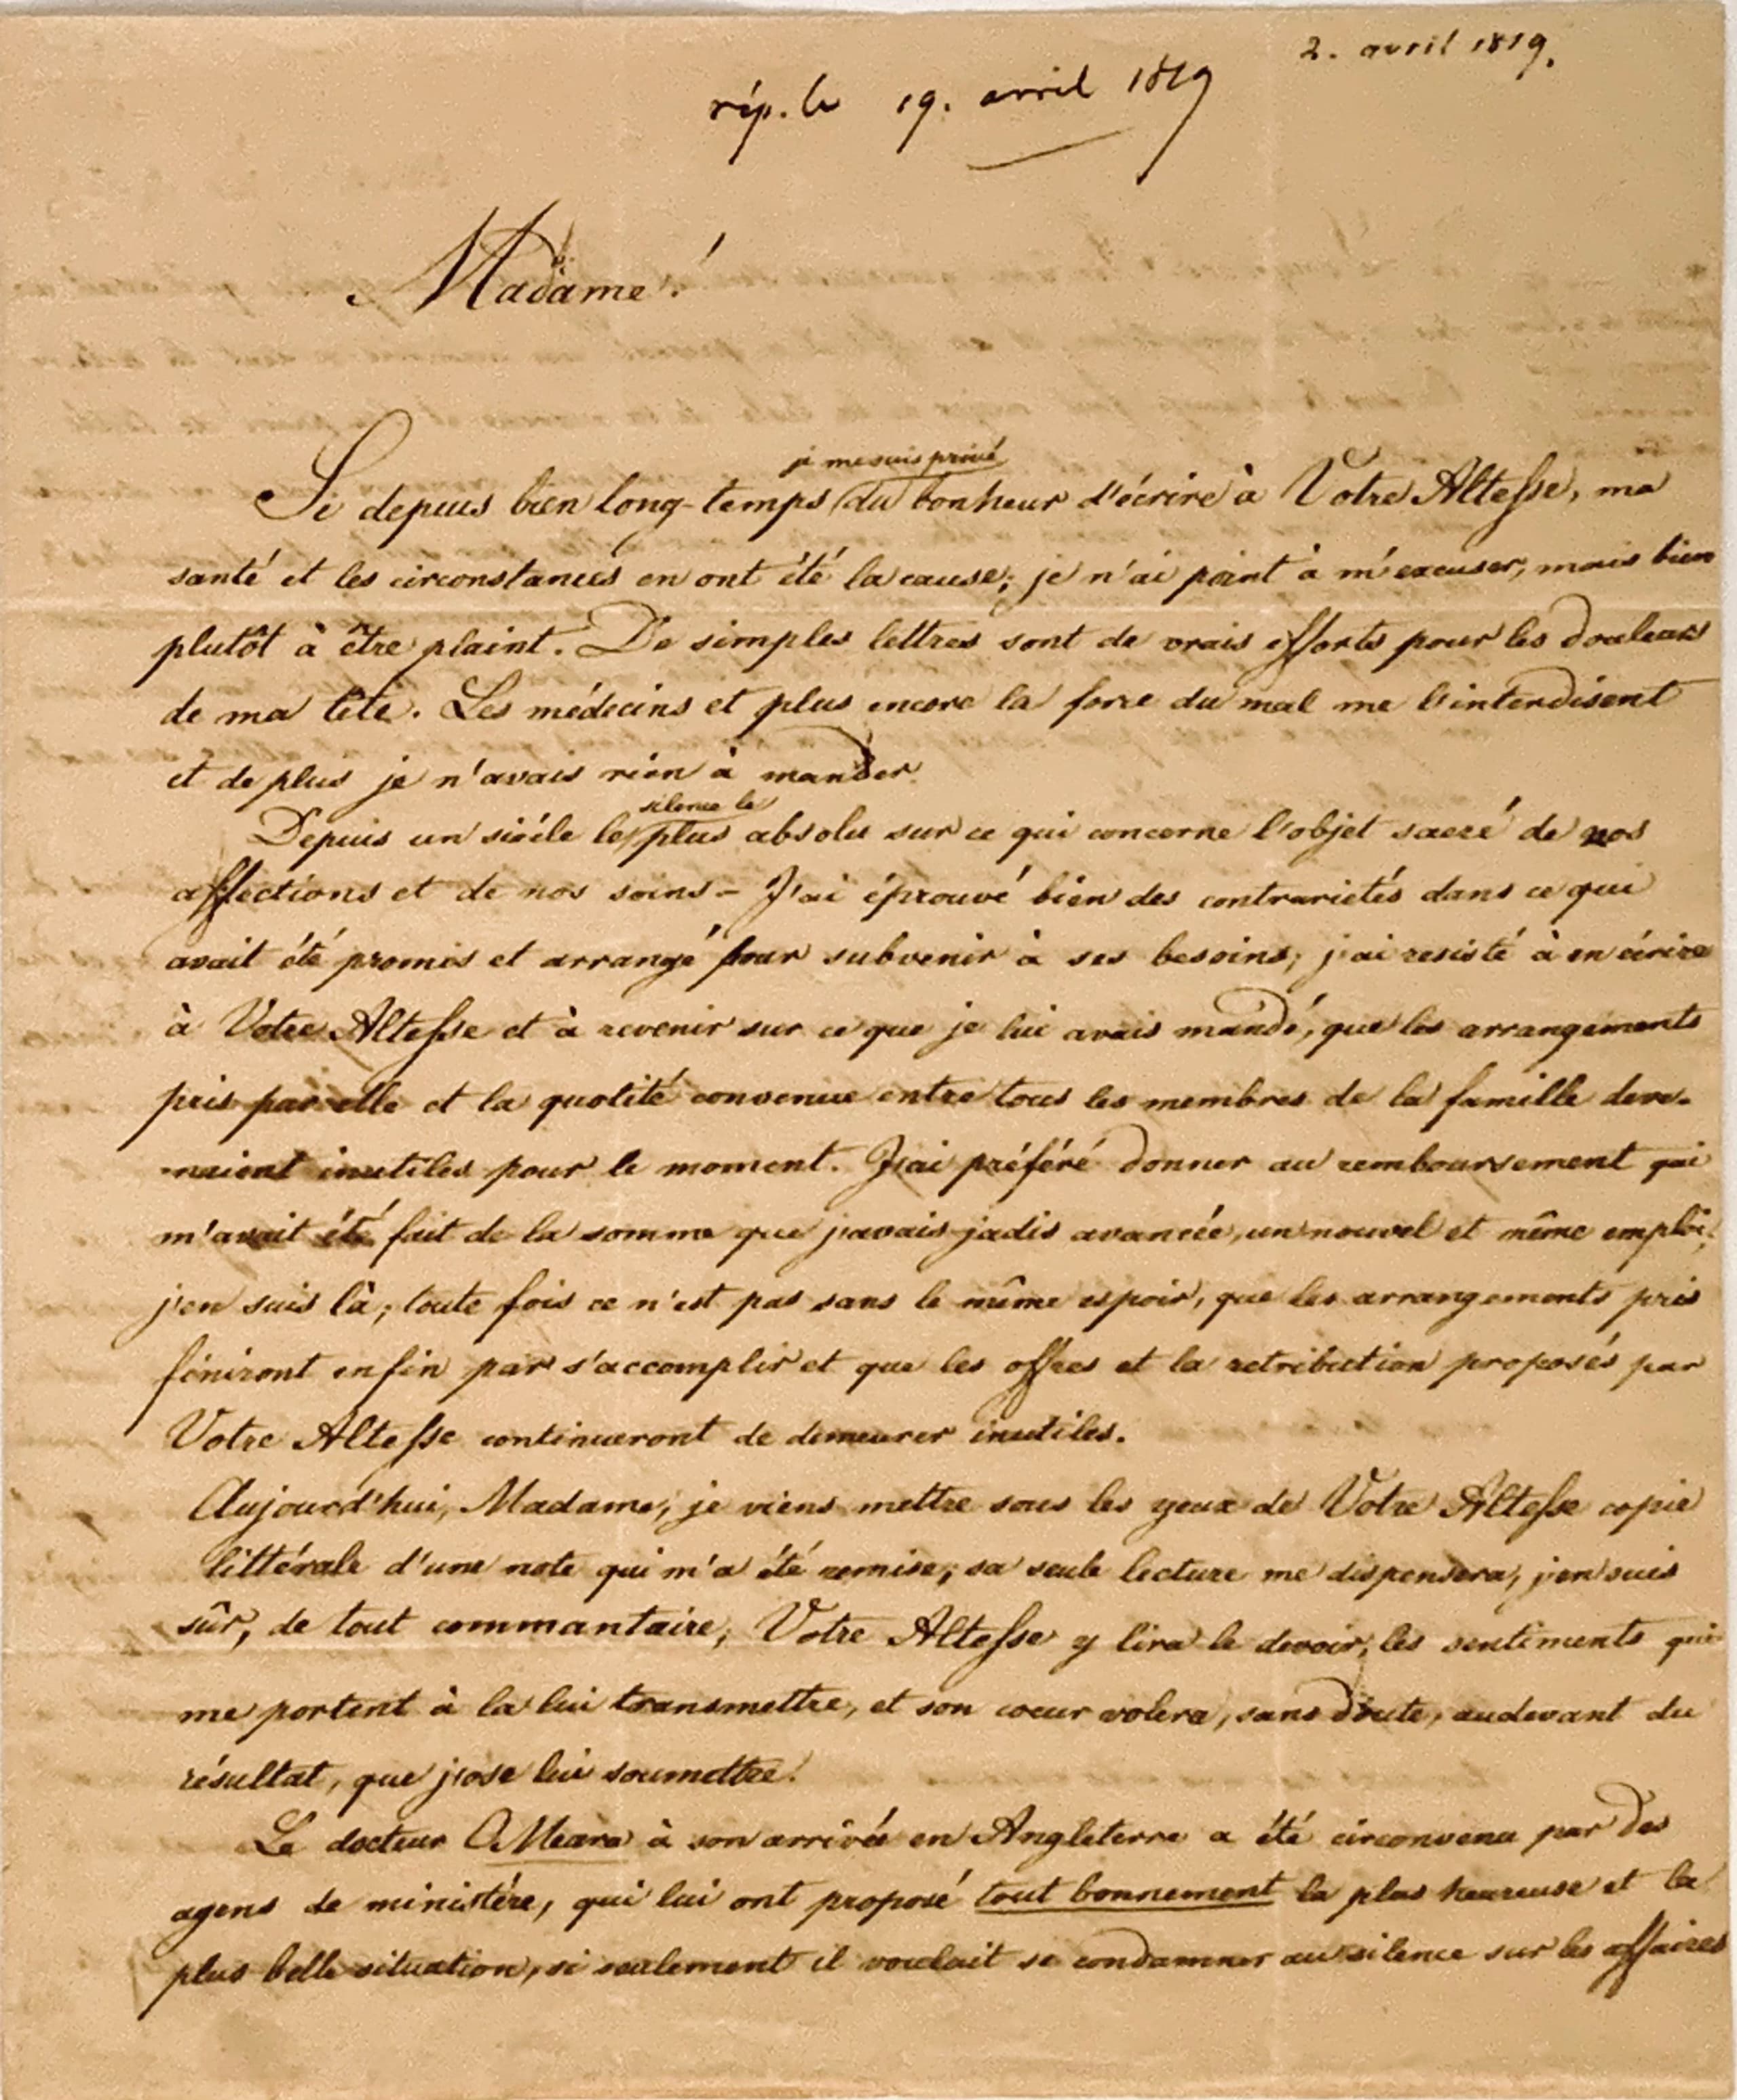 2. avril 1819.
rép. le 19. avril 1819
Madame!
je me suis privé
Si depuis bien long-temps du bonheur d'écrire à Votre Altesse, ma
santé et les circonstances en ont été la cause; je n'ai point à m'excuser, mais bien
plutôt à être plaint. De simples lettres sont de vrais efforts pour les douleurs
de ma tête. Les médecins et plus encore la force du mal me l'interdisent
et de plus je n'avais rien à mander.
silence le
Depuis un siécle le plus absolu sur ce qui concerne l'objet sacré de nos
affections et de nos soins - J'ai éprouvé bien des contrariétés dans ce qui
avait été promis et arrangé pour subvenir à ses besoins; j'ai resisté à en écrire
à Votre Altesse et à revenir sur ce que je lui avais mandé, que les arrangements
pris par elle et la quotité convenue entre tous les membres de la famille deve-
naient inutiles pour le moment. J'ai préféré donner au remboursement qui
m'avait été fait de la somme que j'avais jadis avancée, un nouvel et même emploi;
j'en suis là; toute fois ce n'est pas sans le même espoir, que les arrangements pris
finiront enfin par s'accomplir et que les offres et la retribution proposés par
Votre Altesse continueront de demeurer inutiles.
Aujourd'hui, Madame, je viens mettre sous les yeux de Votre Altesse copie
littérale d'une note qui m'a été remise; sa seule lecture me dispensera, j'en suis
sûr, de tout commantaire; Votre Altesse y lira le devoir, les sentiments qui
me portent à la lui transmettre, et son coeur volera, sans doute, audevant du
résultat, que j'ose lui soumettre.
Le docteur OMeara à son arrivée en Angleterre a été circonvenu par des
agens de ministére, qui lui ont proposé tout bonnement la plus heureuse et la
plus belle situation, si seulement il voulait se condamner au silence sur les affaires